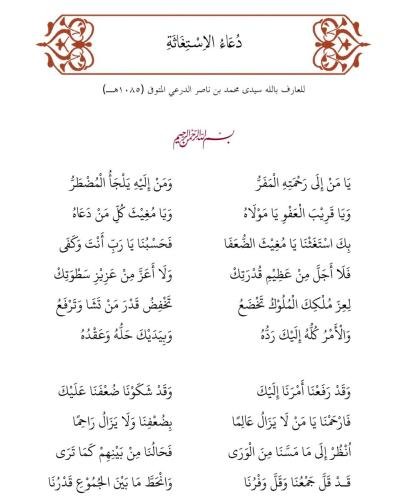 دُعَاءُ الِاسْتِغَاثَةِ
للعارف بالله سيدى محمد بن ناصر الدرعي المتوفى (١٠٨٥هـ)
بسم الله الرحمن الرحيم
يَا مَنْ إِلَى رَحْمَتِهِ الْمَفَرُّ وَمَنْ إِلَيْهِ يَلْجَأُ الْمُضْطَرُّ
وَيَا قَرِيْبَ الْعَفْوِ يَا مَوْلَاهُ وَيَا مُغِيْثَ كُلِّ مَنْ دَعَاهُ
بِكَ اسْتَغَثْنَا يَا مُغِيْثَ الضُّعَفَا فَحَسْبُنَا يَا رَبِّ أَنْتَ وَكَفَى
فَلَا أَجَلَّ مِنْ عَظِيْمِ قُدْرَتِكْ وَلَا أَعَزَّ مِنْ عَزِيْزِ سَطْوَتِكْ
لِعِزِّ مُلْكِكَ الْمُلُوْكُ تَخْضَعُ تَخْفِضُ قَدْرَ مَنْ تَشَا وَتَرْفَعُ
وَالْأَمْرُ كُلُّهُ إِلَيْكَ رَدُّهُ وَبِيَدَيْكَ حَلُّهُ وَعَقْدُهُ
وَقَدْ رَفَعْنَا أَمْرَنَا إِلَيْكَ وَقَدْ شَكَوْنَا ضُعْفَنَا عَلَيْكَ
فَارْحَمْنَا يَا مَنْ لَا يَزَالُ عَالِمًا بِضُعْفِنَا وَلَا يَزَالُ رَاحِمًا
اُنْظُرْ إِلَى مَا مَسَّنَا مِنَ الْوَرَى فَحَالُنَا مِنْ بَيْنِهِمْ كَمَا تَرَى
قَدْ قَلَّ جَمْعُنَا وَقَلَّ وَفْرُنَا وَانْحَطَّ مَا بَيْنَ الْجُمُوْعِ قَدْرُنَا